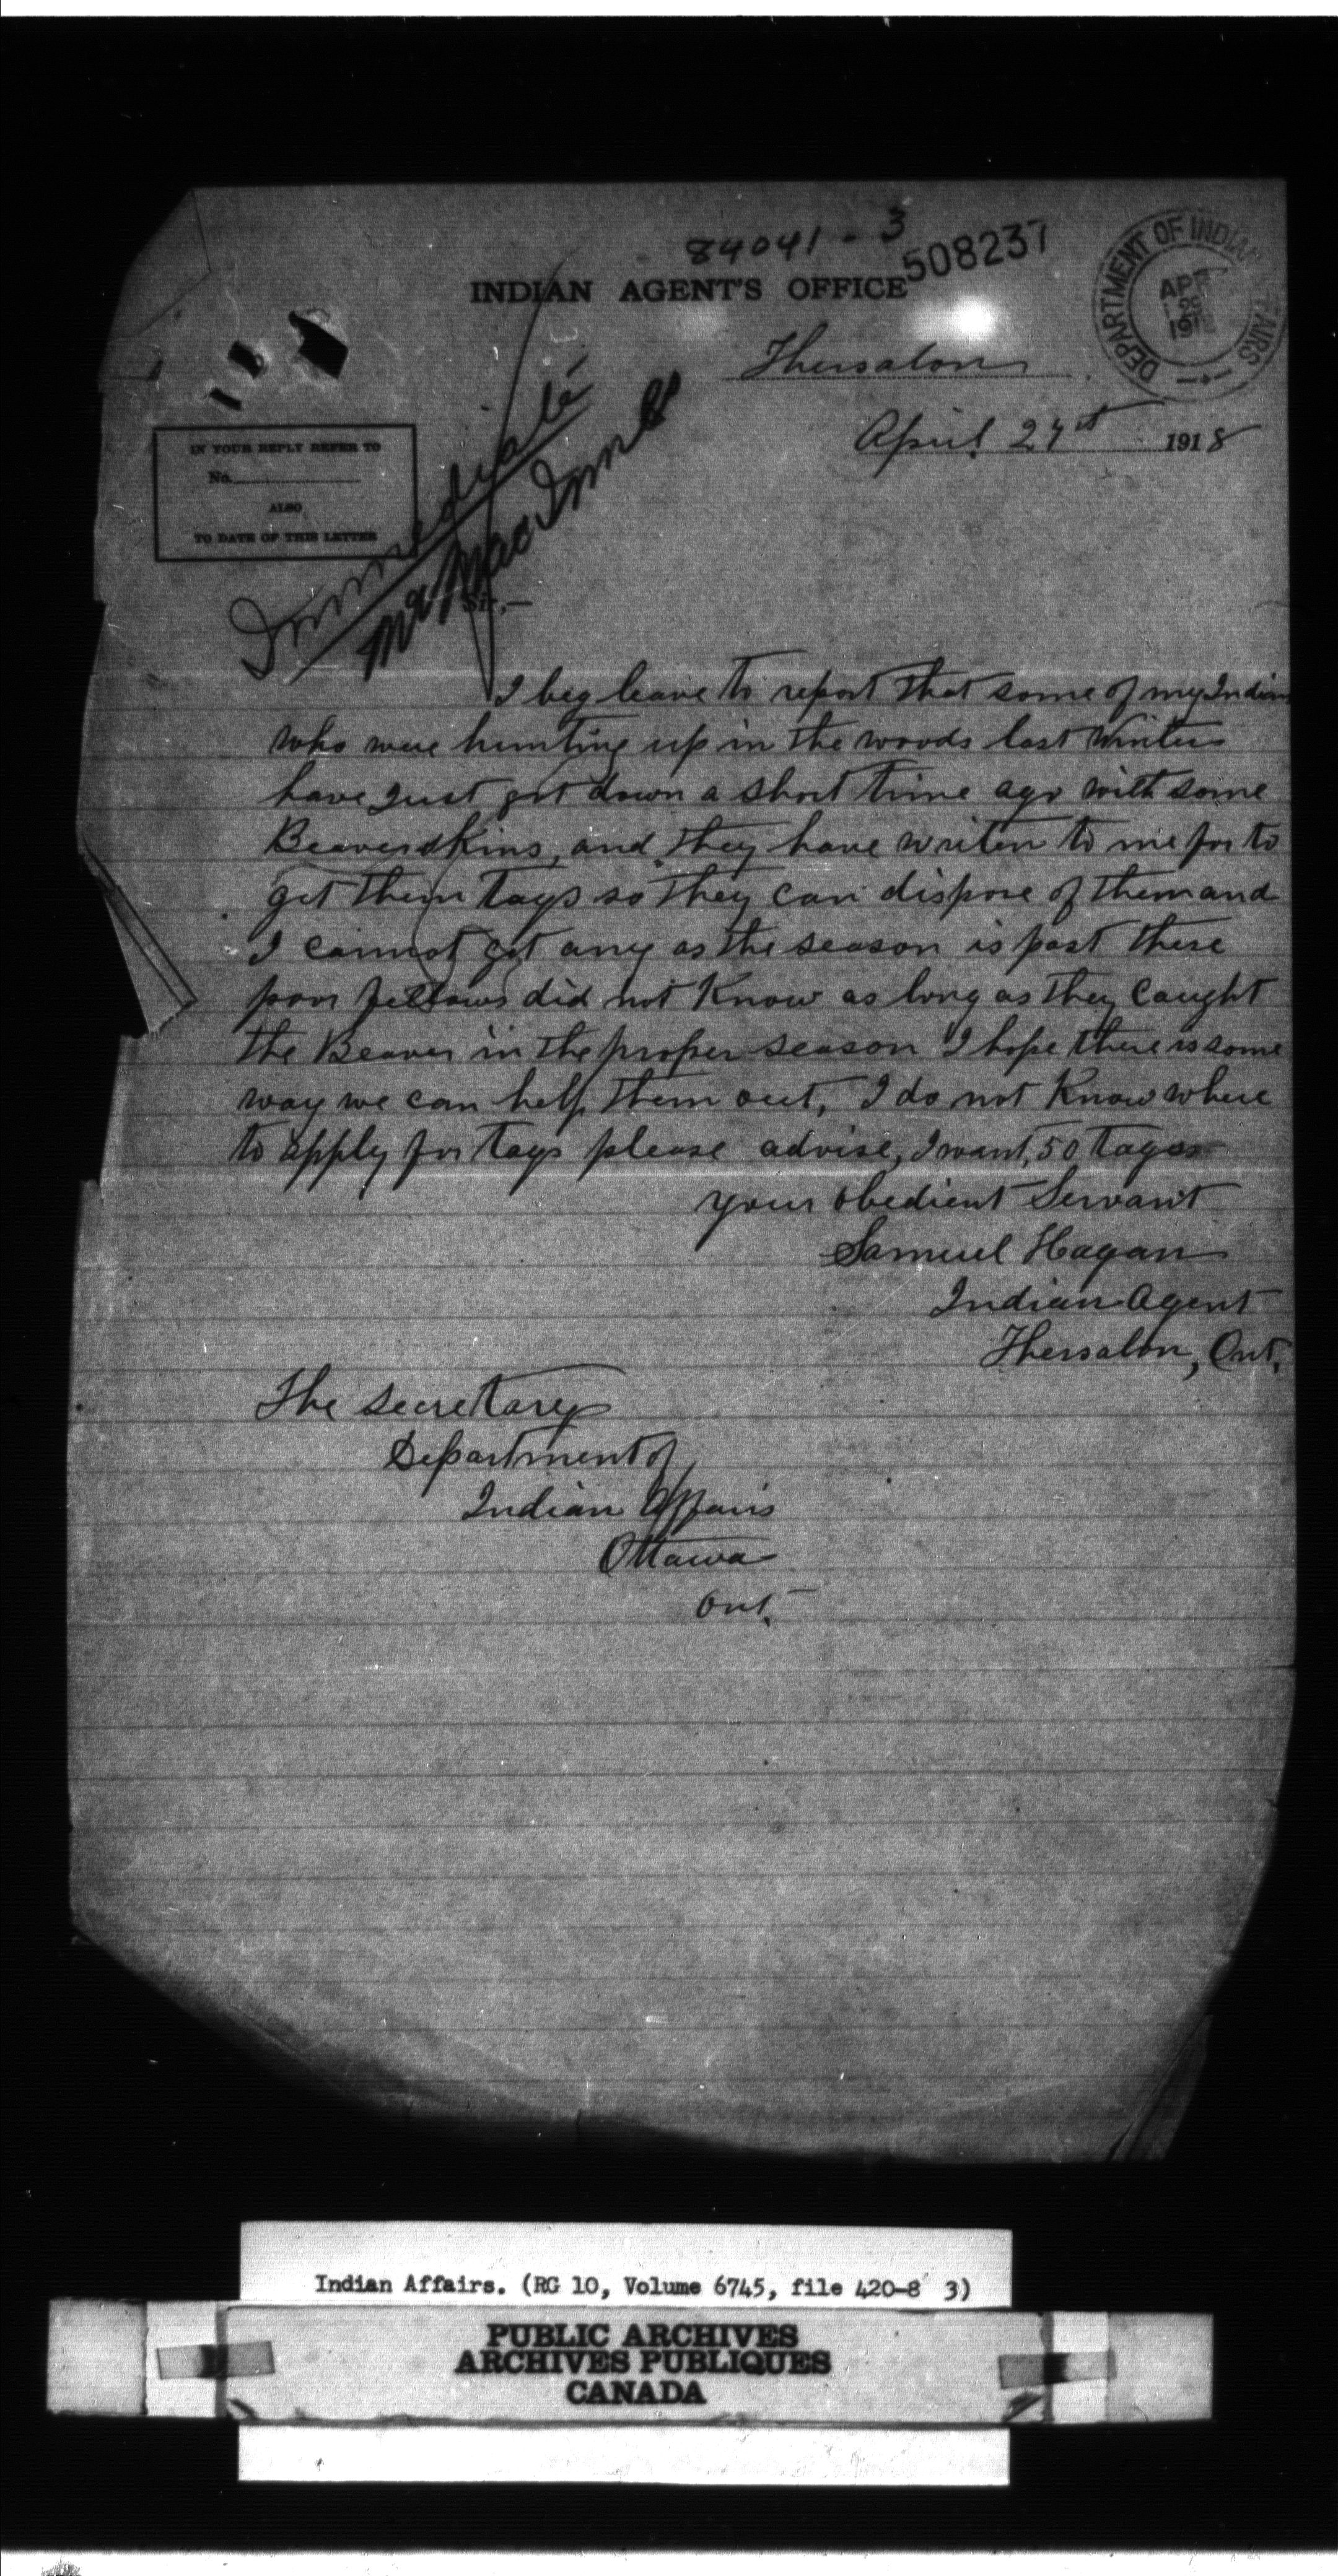 84041-3
508237
INDIAN AGENT'S OFFICE
DEPARTMENT OF INDIAN AFFAIRS
APR
191
Thessalon
April 27th 1918
IN YOUR REPLY REFER TO
No.
ALSO
TO DATE OF THIS LETTER
Immediate
Mr MacInnes
Sir,—
I beg leave to report that some of my Indians
who were hunting up in the woods last Winter
have Just got down a short time ago with some
Beaverskins, and they have writen to me for to
get them tags so they can dispose of them and
I cannot get any as the season is past these
poor fellows did not Know as long as they Caught
the Beaver in the proper season I hope there is some
way we can help them out, I do not Know where
to apply for tags please advise, I want 50 tags
your obedient Servant
Samuel Hagan
Indian Agent
Thessalon, Ont.
The Secretary
Department of
Indian Affairs
Ottawa
Ont.
Indian Affairs. (RG 10, Volume 6745, file 420-8 3)
PUBLIC ARCHIVES
ARCHIVES PUBLIQUES
CANADA